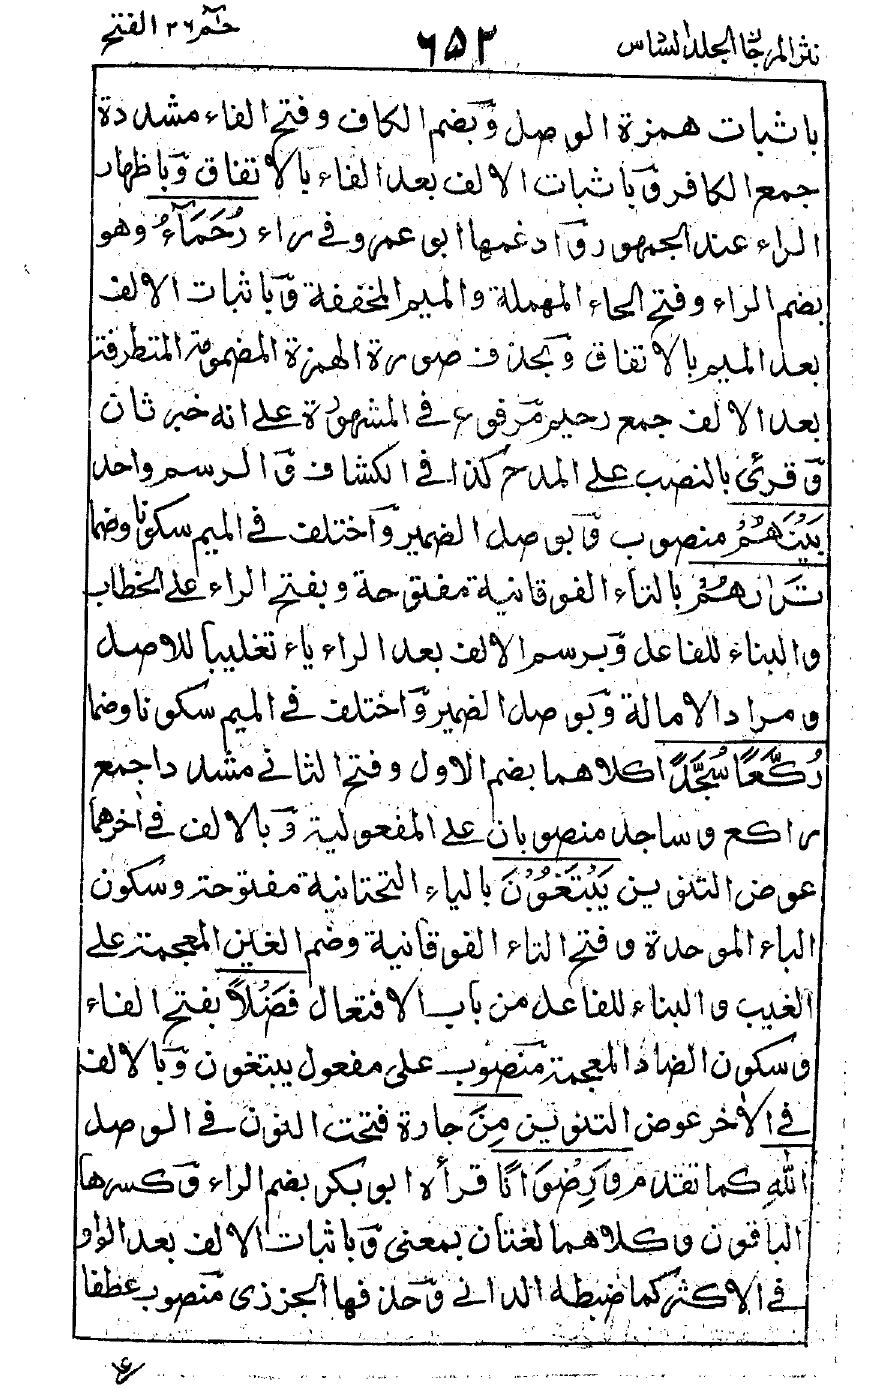 نثر المرجان الجلد السادس ٦٥٢ حٰمٓ ٢٦ الفتح
باثبات همزة الوصل وَبضم الكاف وفتح الفاء مشددة
جمع الكافر وَباثبات الالف بعد الفاء بالاتفاق وَباظهار
الراء عند الجمهور وَادغمها ابو عمرو في راء رُحَمَآءُ وهو
بضم الراء وفتح الحاء المهملة والميم المخففة وَباثبات الالف
بعد الميم بالاتفاق وَبحذف صورة الهمزة المضمومة المتطرفة
بعد الالف جمع رحيم مَرفوع في المشهورة على انه خبر ثان
وَقرئ بالنصب على المدح كذا في الكشاف وَالرسم واحد
بَيْنَهُمْ منصوب وَبوصل الضمير وَاختلف في الميم سكونا وضما
تَرٰىهُمْ بالتاء الفوقانية مفتوحة وبفتح الراء على الخطاب
والبناء للفاعل وَبرسم الالف بعد الراء ياء تغليبا للاصل
ومراد الامالة وَبوصل الضمير وَاختلف في الميم سكونا وضما
رُكَّعًا سُجَّدًا كلاهما بضم الاول وفتح الثاني مشددا جمع
راكع وساجد منصوبان على المفعولية وَبالالف في اٰخرهما
عوض التنوين يَبْتَغُوْنَ بالياء التحتانية مفتوحة وسكون
الباء الموحدة وفتح التاء الفوقانية وضم الغين المعجمة على
الغيب والبناء للفاعل من باب الافتعال فَضْلًا بفتح الفاء
وسكون الضاد المعجمة منصوب على مفعول يبتغون وَبالالف
في الاٰخر عوض التنوين مِنَ جارة فتحت النون في الوصل
اللهِ كما تقدم وَرِضْوَانًا قرأه ابو بكر بضم الراء وَكسرها
الباقون وكلاهما لغتان بمعنى وَباثبات الالف بعد الواو
في الاكثر كما ضبطه الداني وَحذفها الجزري مَنصوب عطفا